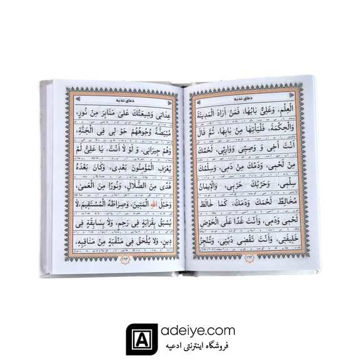 دعای ندبه
الْعِلْمِ، وَعَلِىٌّ بابُها، فَمَنْ اَرادَ الْمَدينَةَ
وَالْحِكْمَةَ، فَلْيَاْتِها مِنْ بابِها، ثُمَّ قالَ
اَنْتَ اَخى وَ وَصِيّى وَوارِثى، لَحْمُكَ
مِنْ لَحْمى، وَدَمُكَ مِنْ دَمى، وَسِلْمُكَ
سِلْمى، وَحَرْبُكَ حَرْبى، وَالْايمانُ
مُخالِطٌ لَحْمَكَ وَدَمَكَ، كَما خالَطَ
لَحْمى وَدَمى، وَاَنْتَ غَداً عَلَى الْحَوْضِ
خَليفَتى، وَاَنْتَ تَقْضى دَيْنى، وَتُنْجِزُ
دعای ندبه
عِداتى، وَشيعَتُكَ عَلى مَنابِرَ مِنْ نُورٍ،
مُبْيَضَّةً وُجُوهُهُمْ حَوْلى فِى الْجَنَّةِ،
وَهُمْ جيرانى، وَ لَوْ لا اَنْتَ، يا عَلِىُّ لَمْ
يُعْرَفِ الْمُؤْمِنُونَ بَعْدى، وَكانَ بَعْدَهُ
هُدىً مِنَ الضَّلالِ، وَنُوراً مِنَ الْعَمى،
وَحَبْلَ اللهِ الْمَتينَ، وَصِراطَهُ الْمُسْتَقيمَ، لا
يُسْبَقُ بِقَرابَةٍ فى رَحِمٍ، وَلا بِسابِقَةٍ فى
دينٍ، وَلا يُلْحَقُ فى مَنْقَبَةٍ مِنْ مَناقِبِهِ،
adeiye.com
فروشگاه اینترنتی ادعیه